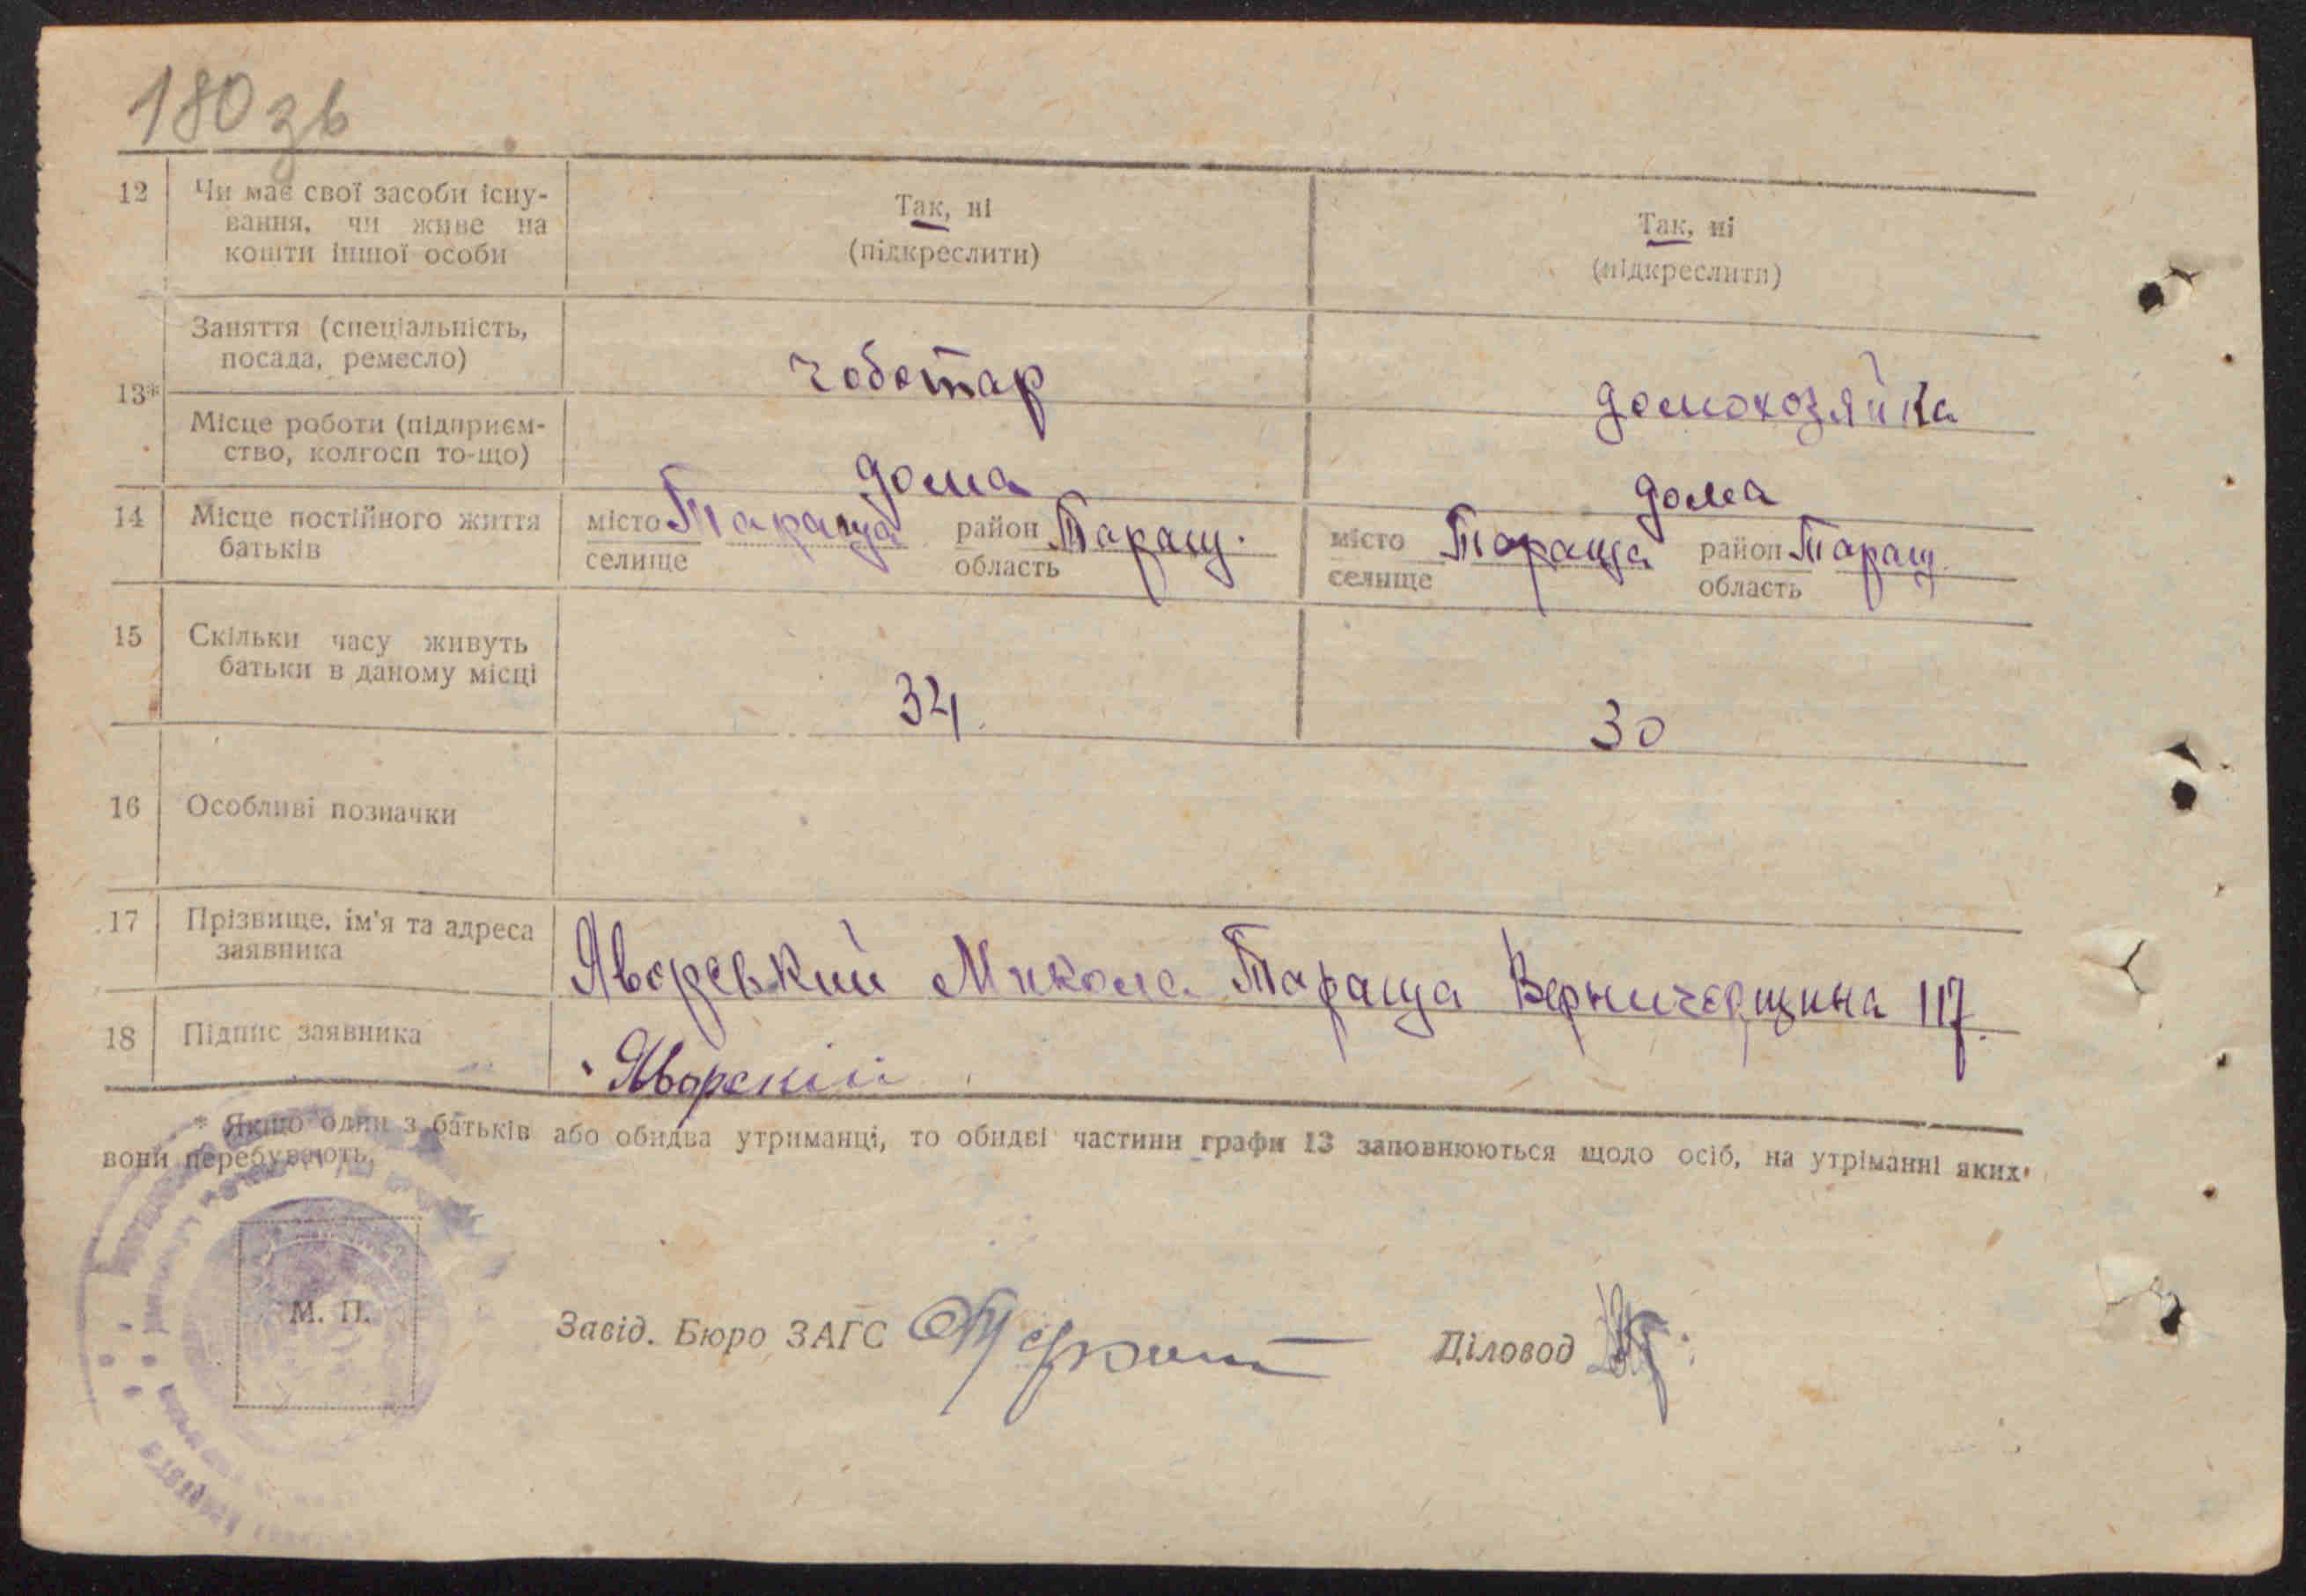 180 зв
12 Чи має свої засоби існу-
вання, чи живе на
кошти іншої особи
Так, ні
(підкреслити)
Так, ні
(підкреслити)
13*
Заняття (спеціальність,
посада, ремесло)
чоботар
домохозяйка
Місце роботи (підприєм-
ство, колгосп то-що)
дома
дома
14 Місце постійного життя
батьків
місто Тараща район Таращ.
селище область
місто Тараща район Таращ.
селище область
15 Скільки часу живуть
батьки в даному місці
34.
30
16 Особливі позначки
17 Прізвище, ім'я та адреса
заявника
Яворський Микола Тараща 117
18 Підпис заявника
Яворский
* Якщо один з батьків або обидва утриманці, то обидві частини графи 13 заповнюються щодо осіб, на утріманні яких
вони перебувають.
М. П.
Завід. Бюро ЗАГС
Діловод